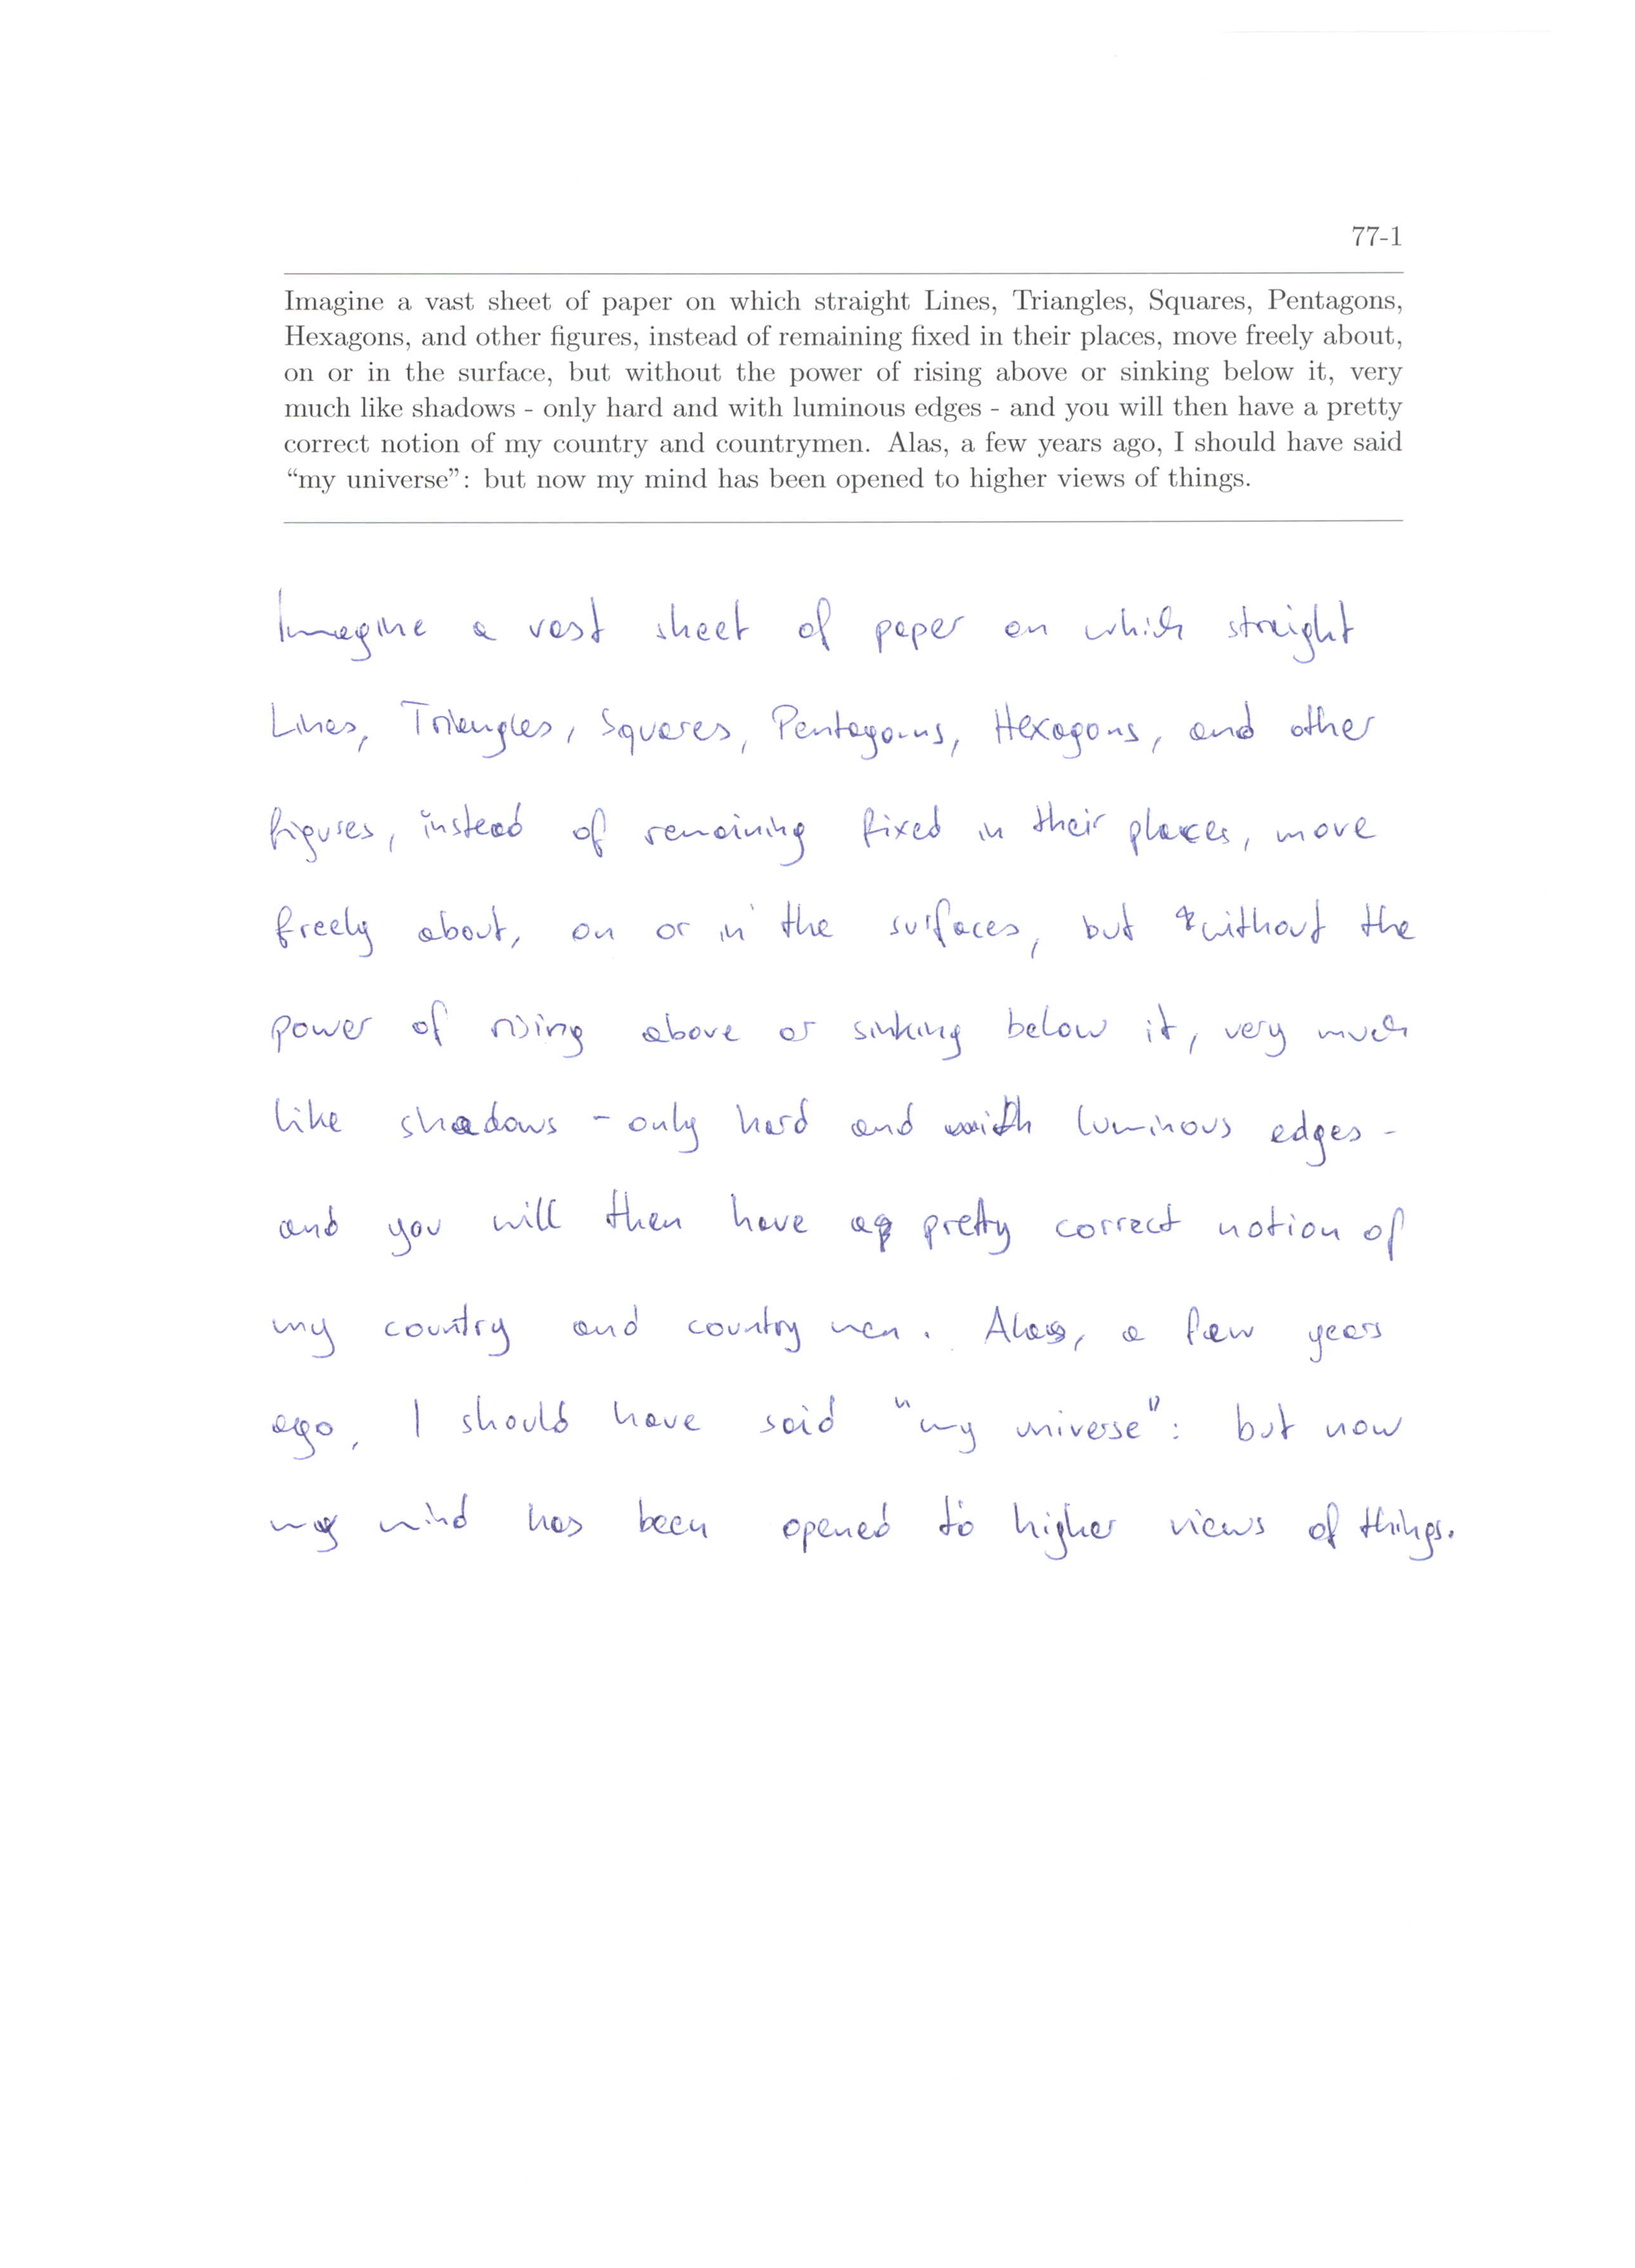 77-1
Imagine a vast sheet of paper on which straight Lines, Triangles, Squares, Pentagons,
Hexagons, and other figures, instead of remaining fixed in their places, move freely about,
on or in the surface, but without the power of rising above or sinking below it, very
much like shadows - only hard and with luminous edges - and you will then have a pretty
correct notion of my country and countrymen. Alas, a few years ago, I should have said
“my universe”: but now my mind has been opened to higher views of things.
Imagine a vast sheet of paper on which straight
Lines, Triangles, Squares, Pentagons, Hexagons, and other
figures, instead of remaining fixed in their places, move
freely about, on or in the surfaces, but without the
power of rising above or sinking below it, very much
like shadows - only hard and with luminous edges -
and you will then have a pretty correct notion of
my country and country men. Alas, a few years
ago, I should have said "my universe": but now
my mind has been opened to higher views of things.